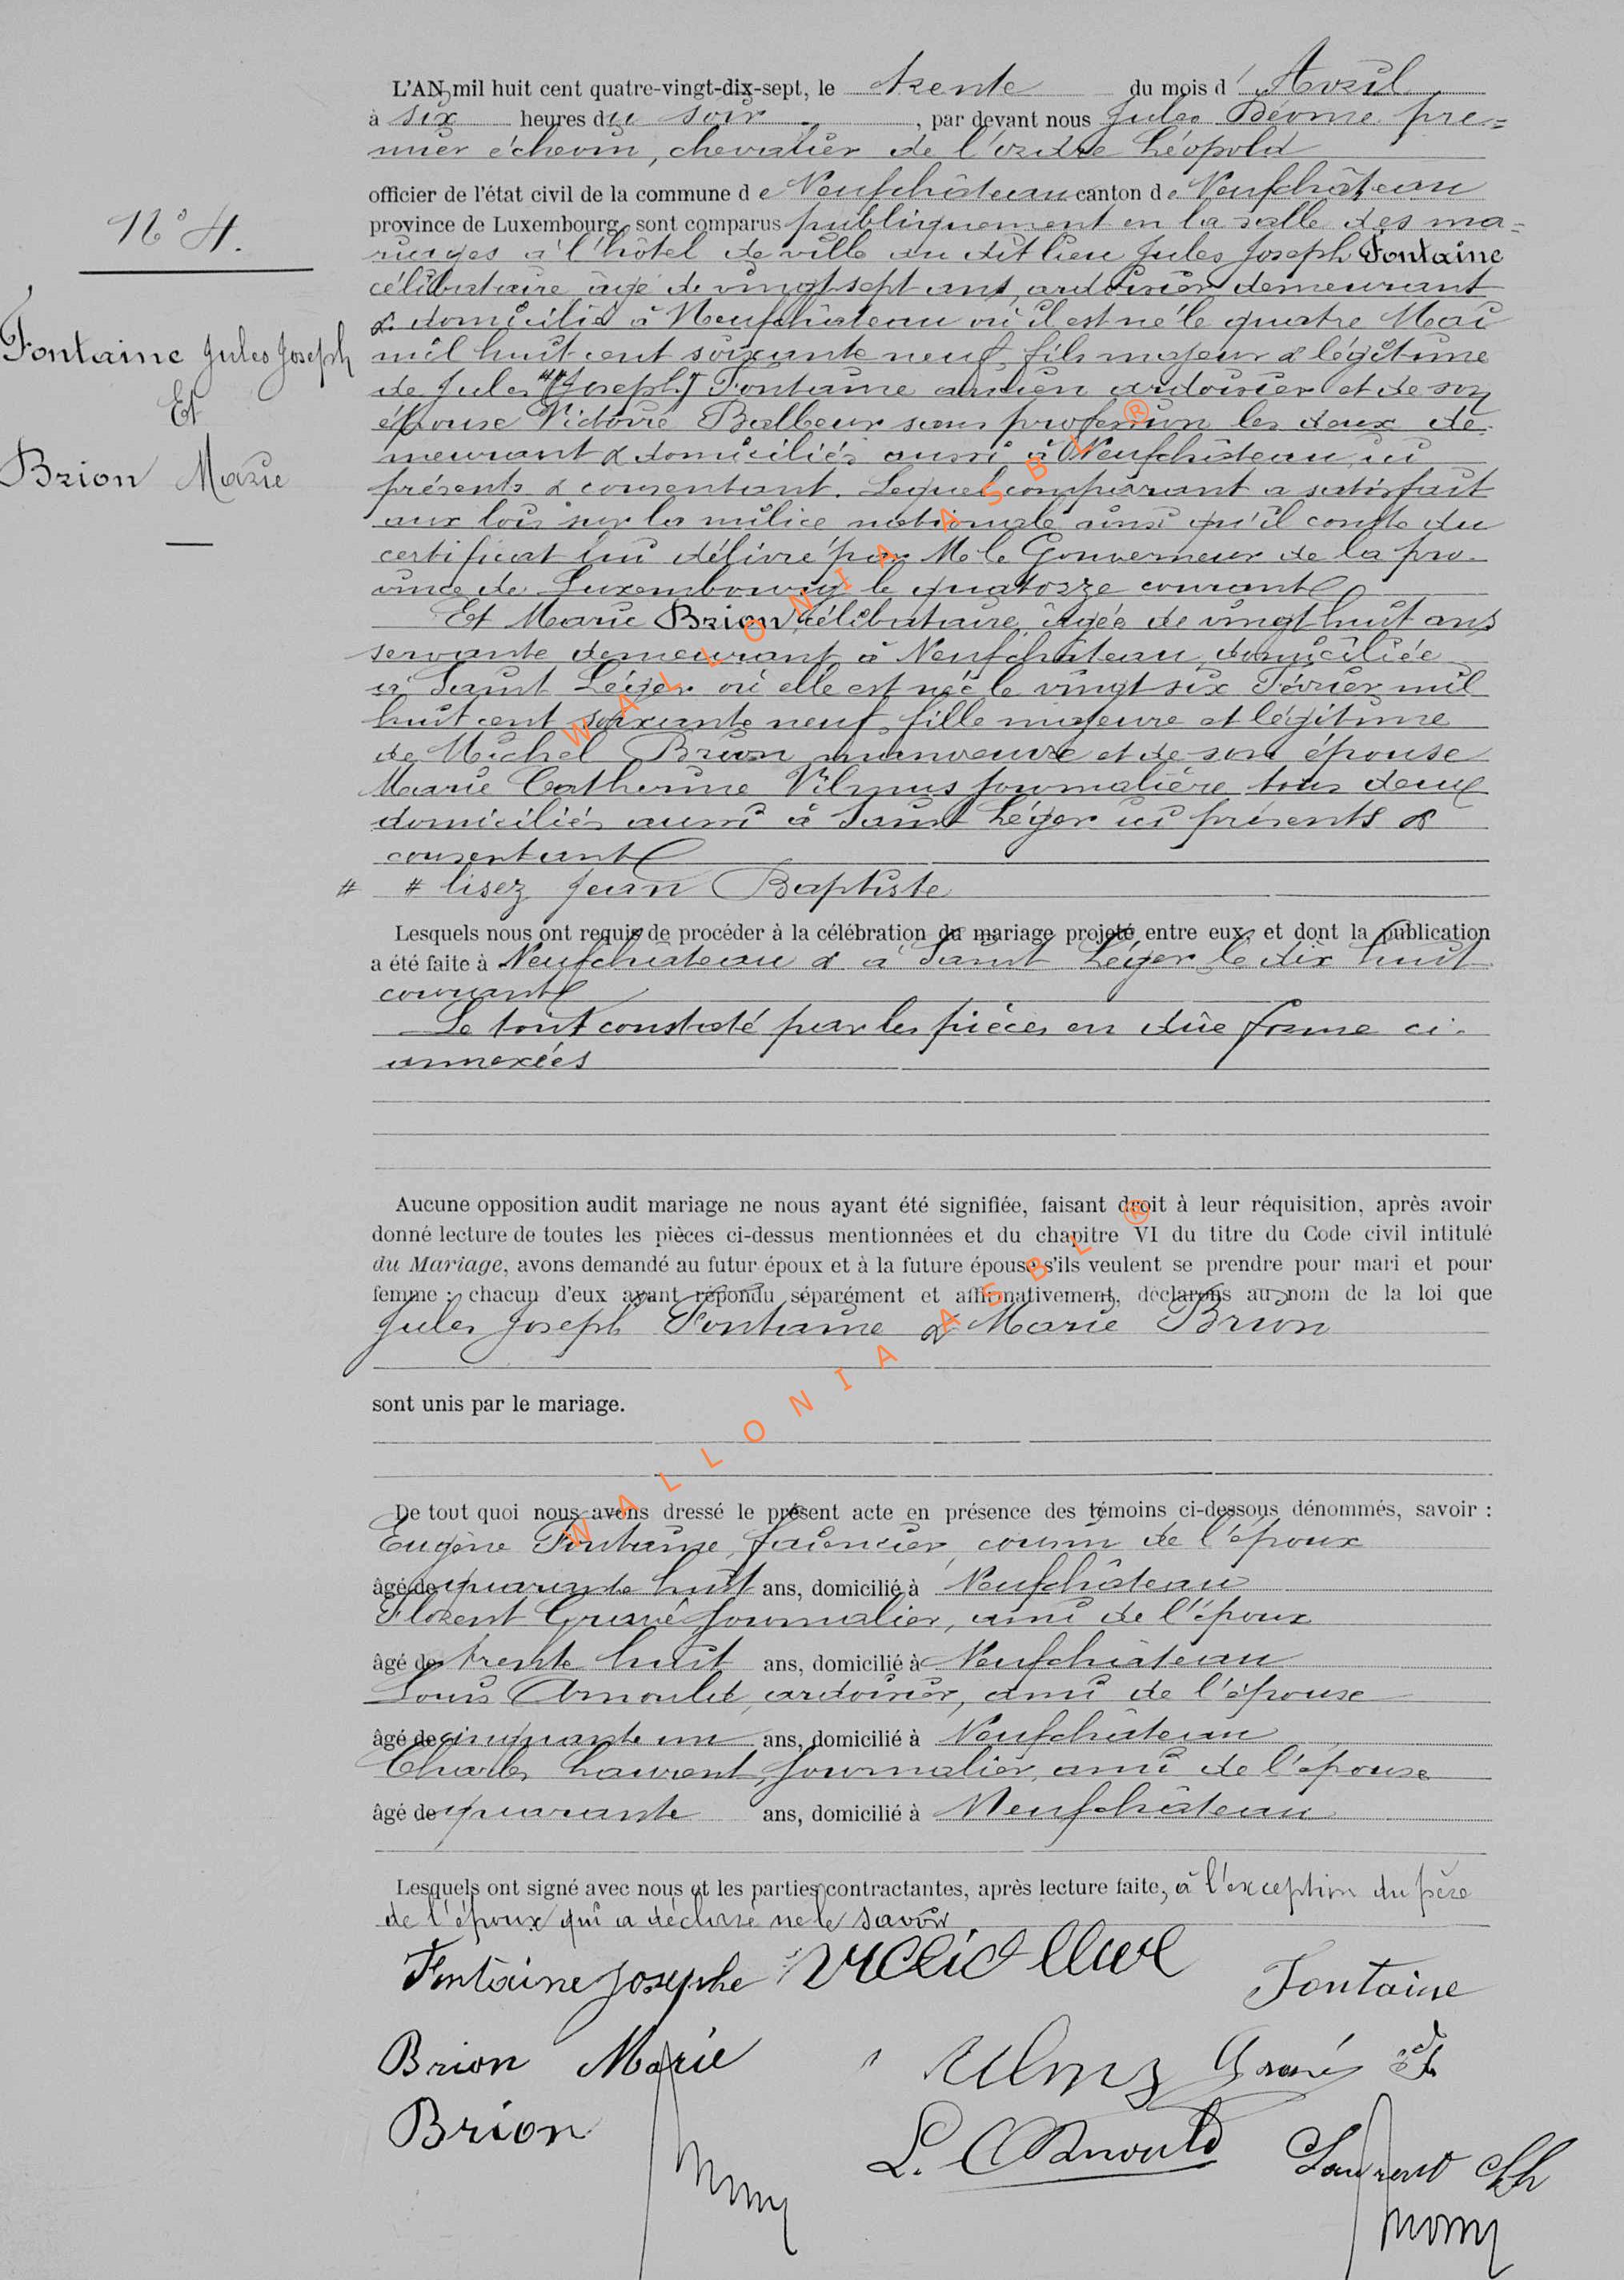 N° 4.
Fontaine Jules Joseph
Et
Brion Marie
L'AN mil huit cent quatre-vingt-dix-sept, le trente du mois d' Avril
à six heures du soir, par devant nous Jules pre=
mier échevin, chevalier de l'ordre Léopold
officier de l'état civil de la commune de Neufchâteau canton de Neufchâteau
province de Luxembourg, sont comparus publiquement en la salle des ma=
riages à l'hôtel de ville du dit lieu Jules Joseph Fontaine
célibataire âgé de vingt sept ans, ardoisier demeurant
& domicilié à Neufchâteau où il est né le quatre Mai
mil huit cent soixante neuf, fils majeur & légitime
de Jules #(Joseph) Fontaine ancien ardoisier et de son
épouse Victoire Balbeur sans profession les deux de
meurant & domiciliés aussi à Neufchâteau, ici
présents & consentant. Lequel comparant a satisfait
aux lois sur la milice nationale ainsi qu'il conste du
certificat lui délivré par M le Gouverneur de la pro-
vince de Luxembourg le quatorze courant
Et Marie Brion célibataire, âgée de vingt huit ans
servante demeurant à Neufchâteau, domiciliée
à Saint Léger où elle est née le vingt six Février mil
huit cent soixante neuf, fille majeure et légitime
de Michel Brion manoeuvre et de son épouse
Marie Catherine Vilmus journalière tous deux
domiciliés aussi à Saint Léger ici présents &
consentant
# # lisez Jean Baptiste
Lesquels nous ont requis de procéder à la célébration du mariage projeté entre eux, et dont la publication
a été faite à Neufchâteau & à Saint Léger le dix huit
courant
Le tout constaté par les pièces en dûe forme ci-
annexées
Aucune opposition audit mariage ne nous ayant été signifiée, faisant droit à leur réquisition, après avoir
donné lecture de toutes les pièces ci-dessus mentionnées et du chapitre VI du titre du Code civil intitulé
du Mariage, avons demandé au futur époux et à la future épouse s'ils veulent se prendre pour mari et pour
femme ; chacun d'eux ayant répondu séparément et affirmativement, déclarons au nom de la loi que
Jules Joseph Fontaine & Marie Brion
sont unis par le mariage.
De tout quoi nous avons dressé le présent acte en présence des témoins ci-dessous dénommés, savoir :
Eugène Fontaine, faïencier, cousin de l'époux
âgé de quarante huit ans, domicilié à Neufchâteau
Florent journalier, ami de l'époux
âgé de trente huit ans, domicilié à Neufchâteau
Louis Arnould, ardoisier, ami de l'épouse
âgé de cinquante un ans, domicilié à Neufchâteau
Charles Laurent, journalier, ami de l'épouse
âgé de quarante ans, domicilié à Neufchâteau
Lesquels ont signé avec nous et les parties contractantes, après lecture faite, à l'exception du père
de l'époux qui a déclaré ne le savoir
Fontaine Josephe Fontaine
Brion Marie
Brion L. Arnould Laurent Ch
WALLONIA ASBL ®
WALLONIA ASBL ®